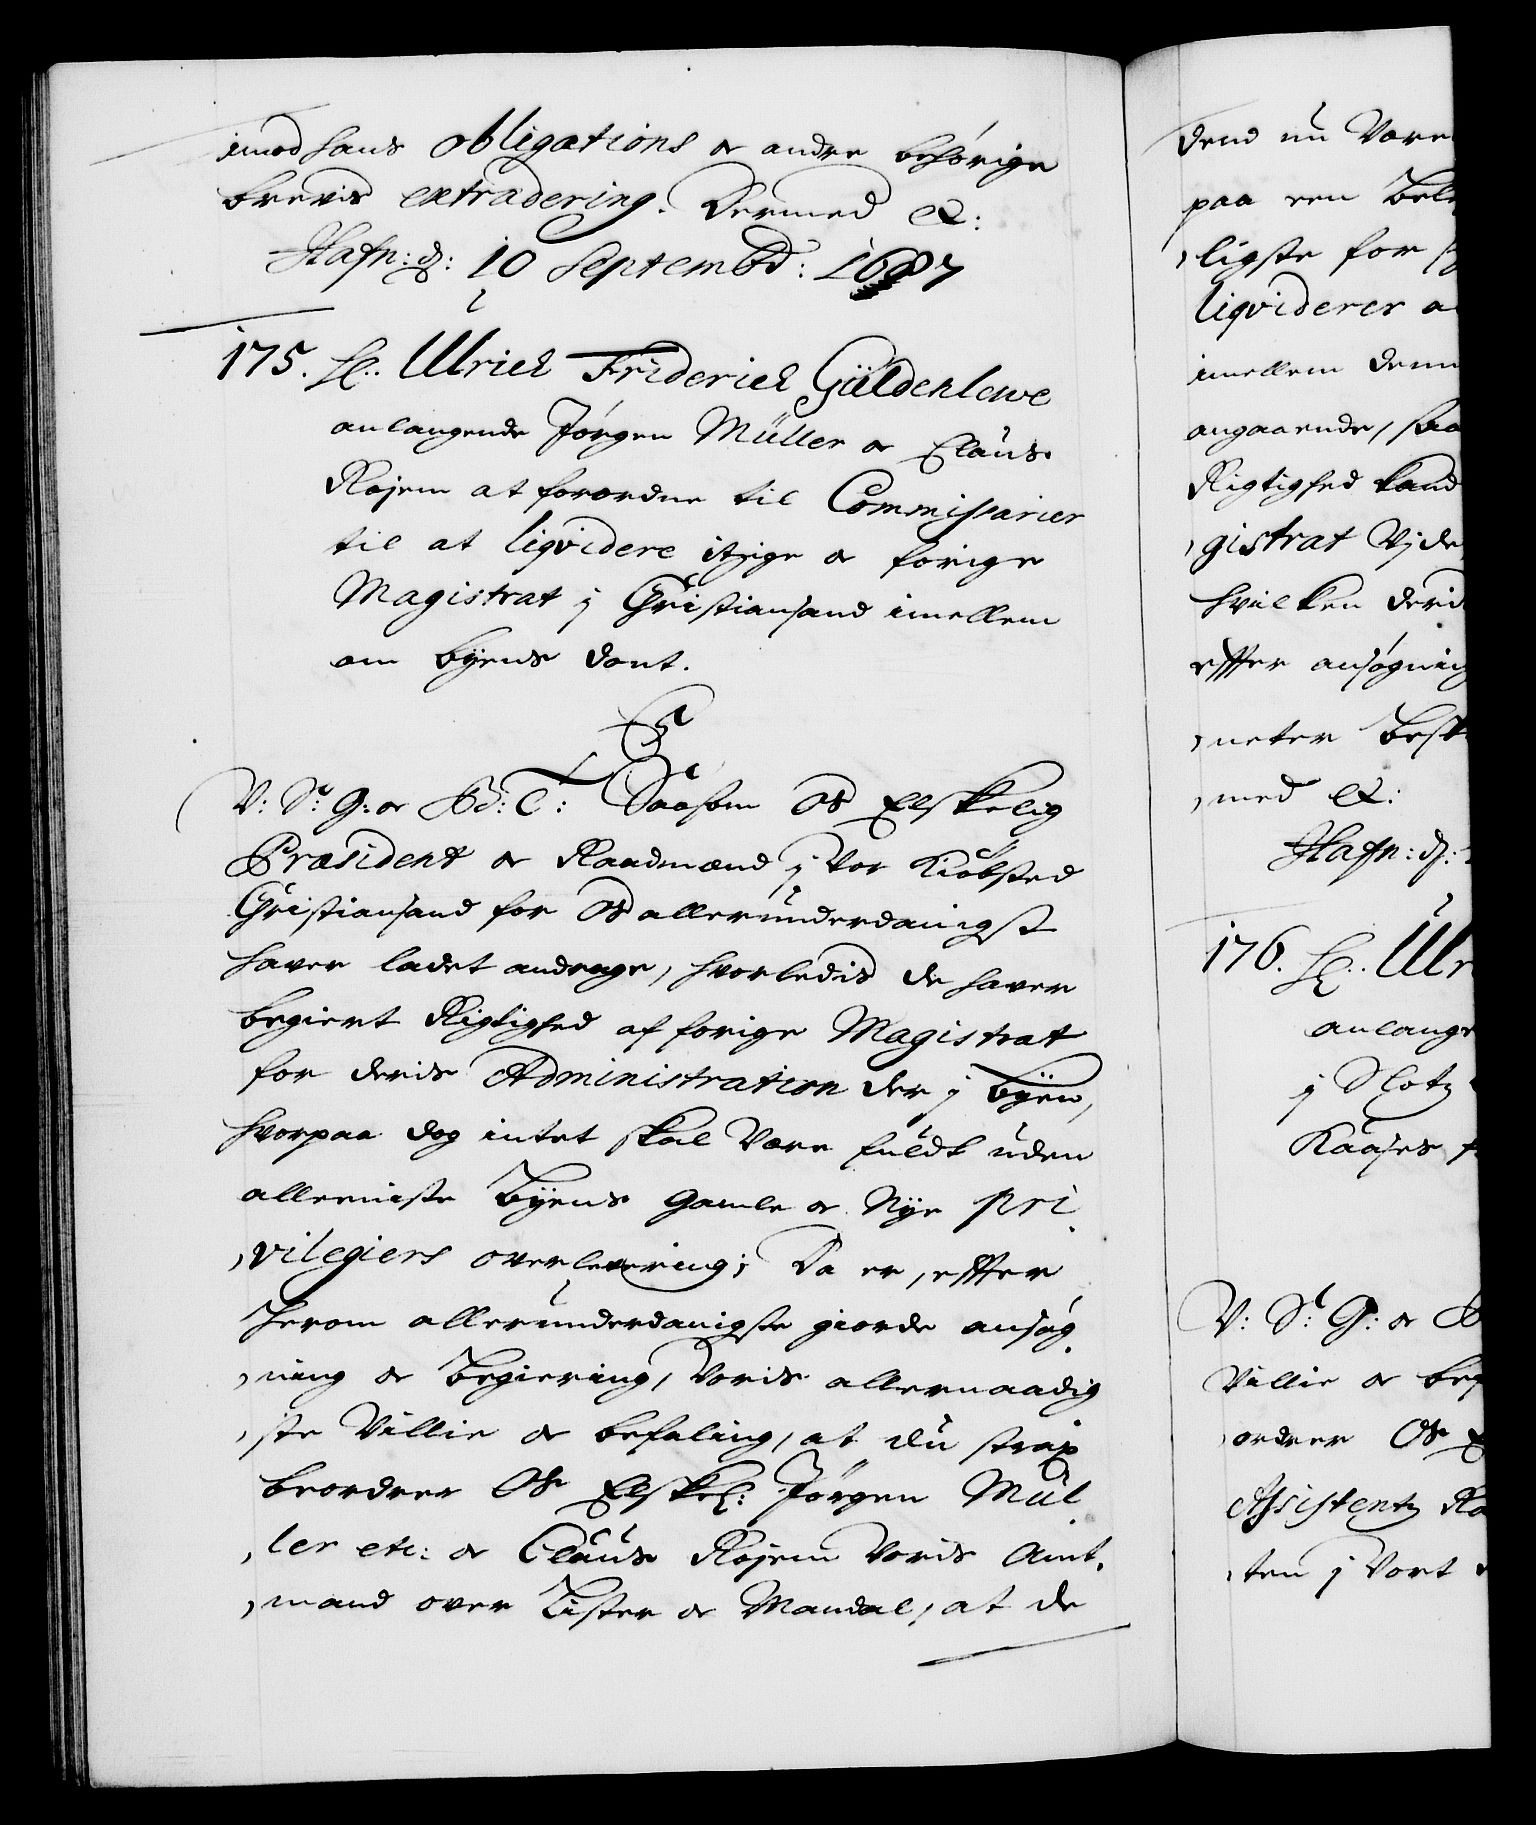 imod hans obligations or andre behørige
brevis extradering. Dermed &:
Hafn: d: 10 Septembr: 1687
175. H: Ulrich Friderich Güldenlewe
anlangende Jørgen Müller or Claus
Røjem at forordne til Commissarier
til at liqvidere itzige or forige
Magistrat j Christiansand imellem
om byens dont.
C5
V: S: G: or Bd: T: Saasom Os Elskelig
Præsident or Raadmænd j vor Kiøbsted
Christiansand for Os allerunderdanigst
haver ladet andrage, hvorledis de haver
begiert Rigtighed af forige Magistrat
for deris Administration der j byen,
hvorpaa dog intet skal være fuldt uden
alleeniste Byens gamle or Nye pri
vilegiers overlevering; Da er, effter
herom allerunderdanigste giorde ansøg
ning or Begiering, Voris allernaadig
ste Villie or befaling, at du strax
beordrer Os Elskel: Jørgen Mül
ler etc: or Claus Røjem Voris Amt
mand over Lister or Mandal, at de
dend nu være
paa een
ligste for
liqviderer
imellem
angaaende, saa
Rigtighed kand
gistrat Vjde
hvilken
effter ansøgning
neter
med &:
Hafn: d:
176. H: Ulr
anlange
j Slotz
Kaases
V: S: G: or B
Villie or bef
ordrer Os E
Assistentz
ten j Vort